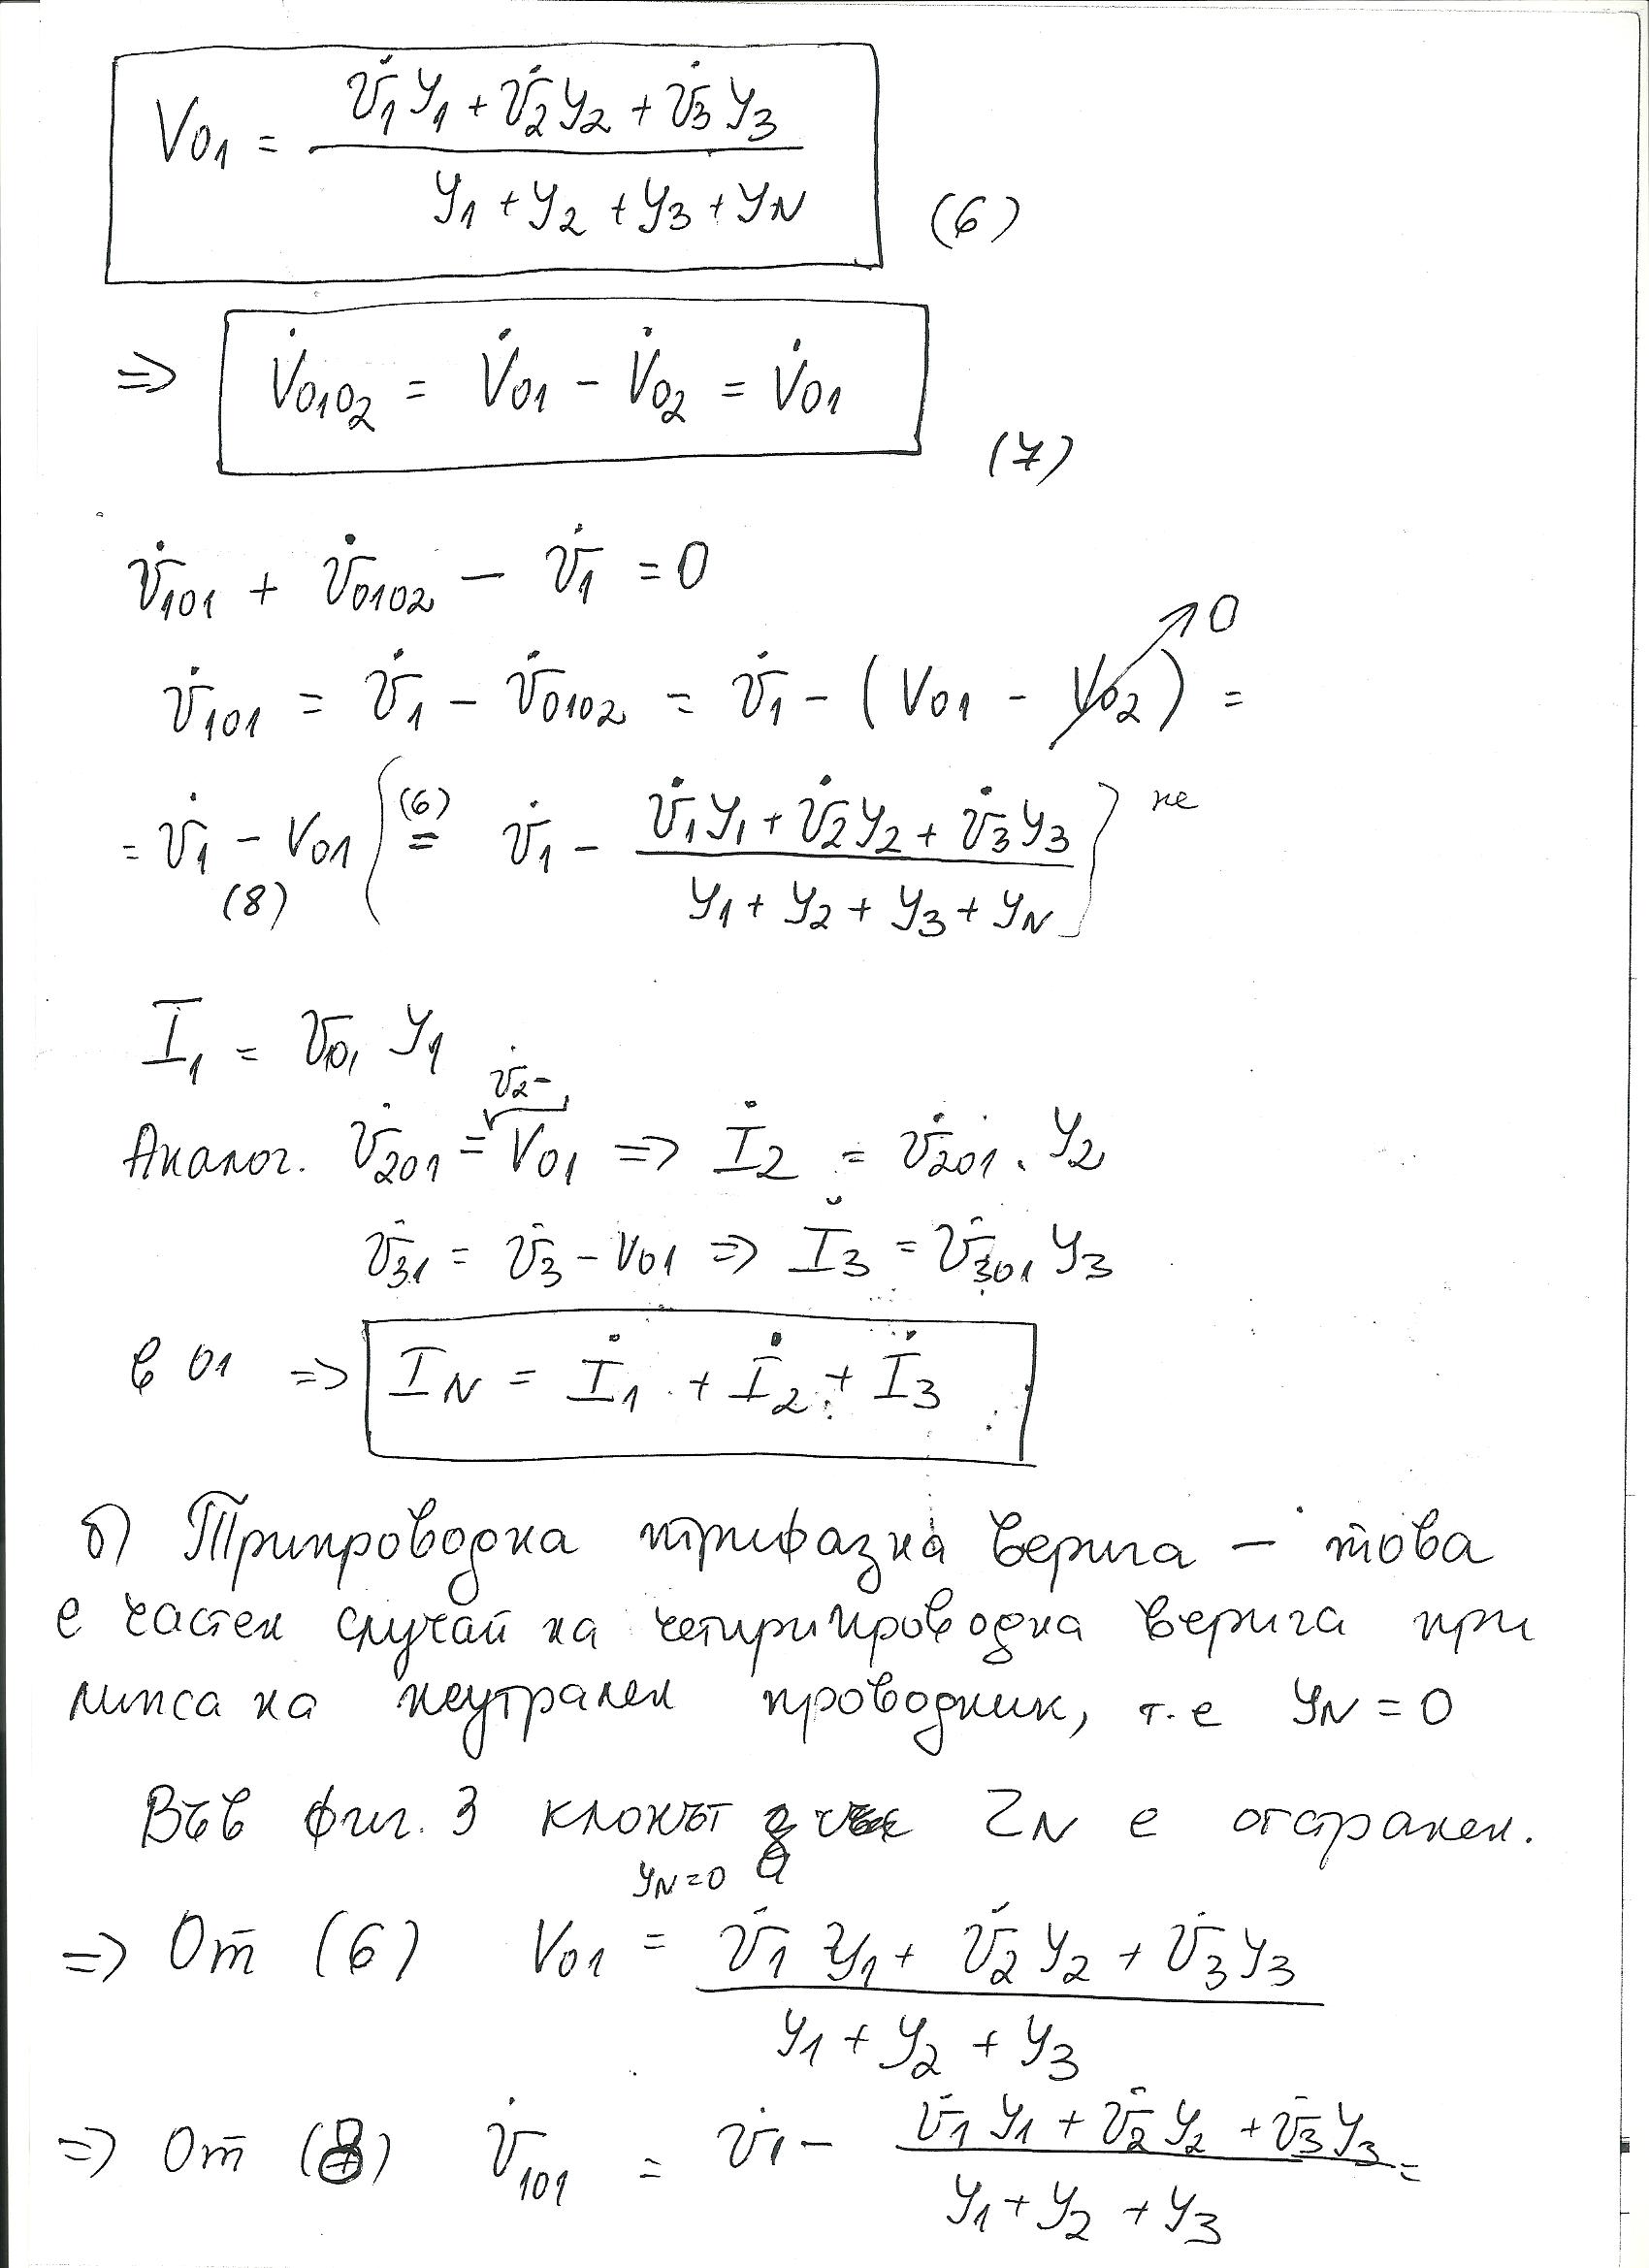 V01 = (U̇1 Y1 + U̇2 Y2 + U̇3 Y3) / (Y1 + Y2 + Y3 + YN) (6)
=> V̇0102 = V̇01 - V̇02 = V̇01 (7)
U̇101 + U̇0102 - U̇1 = 0
U̇101 = U̇1 - U̇0102 = U̇1 - (V01 - V02) = → 0
= U̇1 - V01 { (6) = U̇1 - (U̇1 Y1 + U̇2 Y2 + U̇3 Y3) / (Y1 + Y2 + Y3 + YN) } не
(8)
I1 = U101 Y1
U̇2 -
Аналог. U̇201 = V01 => İ2 = U̇201 . Y2
U̇31 = U̇3 - V01 => İ3 = U̇301 Y3
в 01 => IN = İ1 + İ2 + İ3
б) Трипроводна трифазна верига – това
е частен случай на четирипроводна верига при
липса на неутрален проводник, т.е YN = 0
Във фиг. 3 клонът с ZN е отстранен.
YN=0
=> От (6) V01 = (U̇1 Y1 + U̇2 Y2 + U̇3 Y3) / (Y1 + Y2 + Y3)
=> От (8) U̇101 = U̇1 - (U̇1 Y1 + U̇2 Y2 + U̇3 Y3) / (Y1 + Y2 + Y3) =